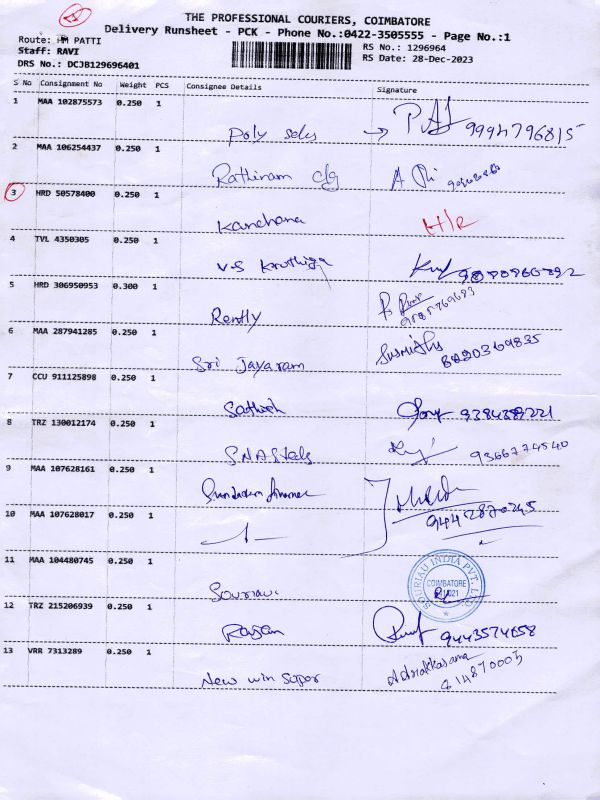 THE PROFESSIONAL COURIERS, COIMBATORE
Delivery Runsheet - PCK - Phone No.:0422-3505555 - Page No.:1
Route: PATTI
Staff: RAVI
DRS No.: DCJB129696401
RS No.: 1296964
RS Date: 28-Dec-2023
S No Consignment No Weight PCS Consignee Details Signature
1 MAA 102875573 0.250 1
Poly sales 9994796815
2 MAA 106254437 0.250 1
Rathinam clg A
3 HRD 50578400 0.250 1
Kanchana H/R
4 TVL 4350305 0.250 1
V.S Kruthiga
5 HRD 306950953 0.300 1
Rently
6 MAA 287941285 0.250 1
Sri Jayaram 8220369835
7 CCU 911125898 0.250 1
Sathish
8 TRZ 130012174 0.250 1
SNA Steels 9366774540
9 MAA 107628161 0.250 1
Sundaram finance
10 MAA 107628017 0.250 1
9442870245
11 MAA 104480745 0.250 1
Souriau SOURIAU INDIA PVT. LTD. COIMBATORE
12 TRZ 215206939 0.250 1
Rajan 9443574658
13 VRR 7313289 0.250 1
New win Super